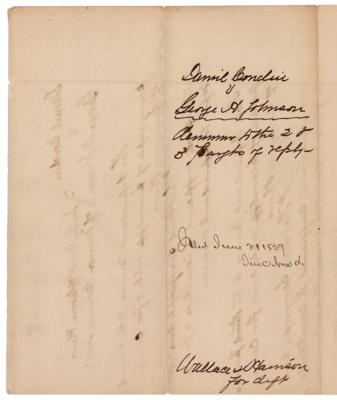 Daniel Conduit
v
George H. Johnson
Demurrer to the 2 &
3 Parg'ts of reply -
Filed June 21 1859
Jno C New cl
Wallace & Harrison
for deft